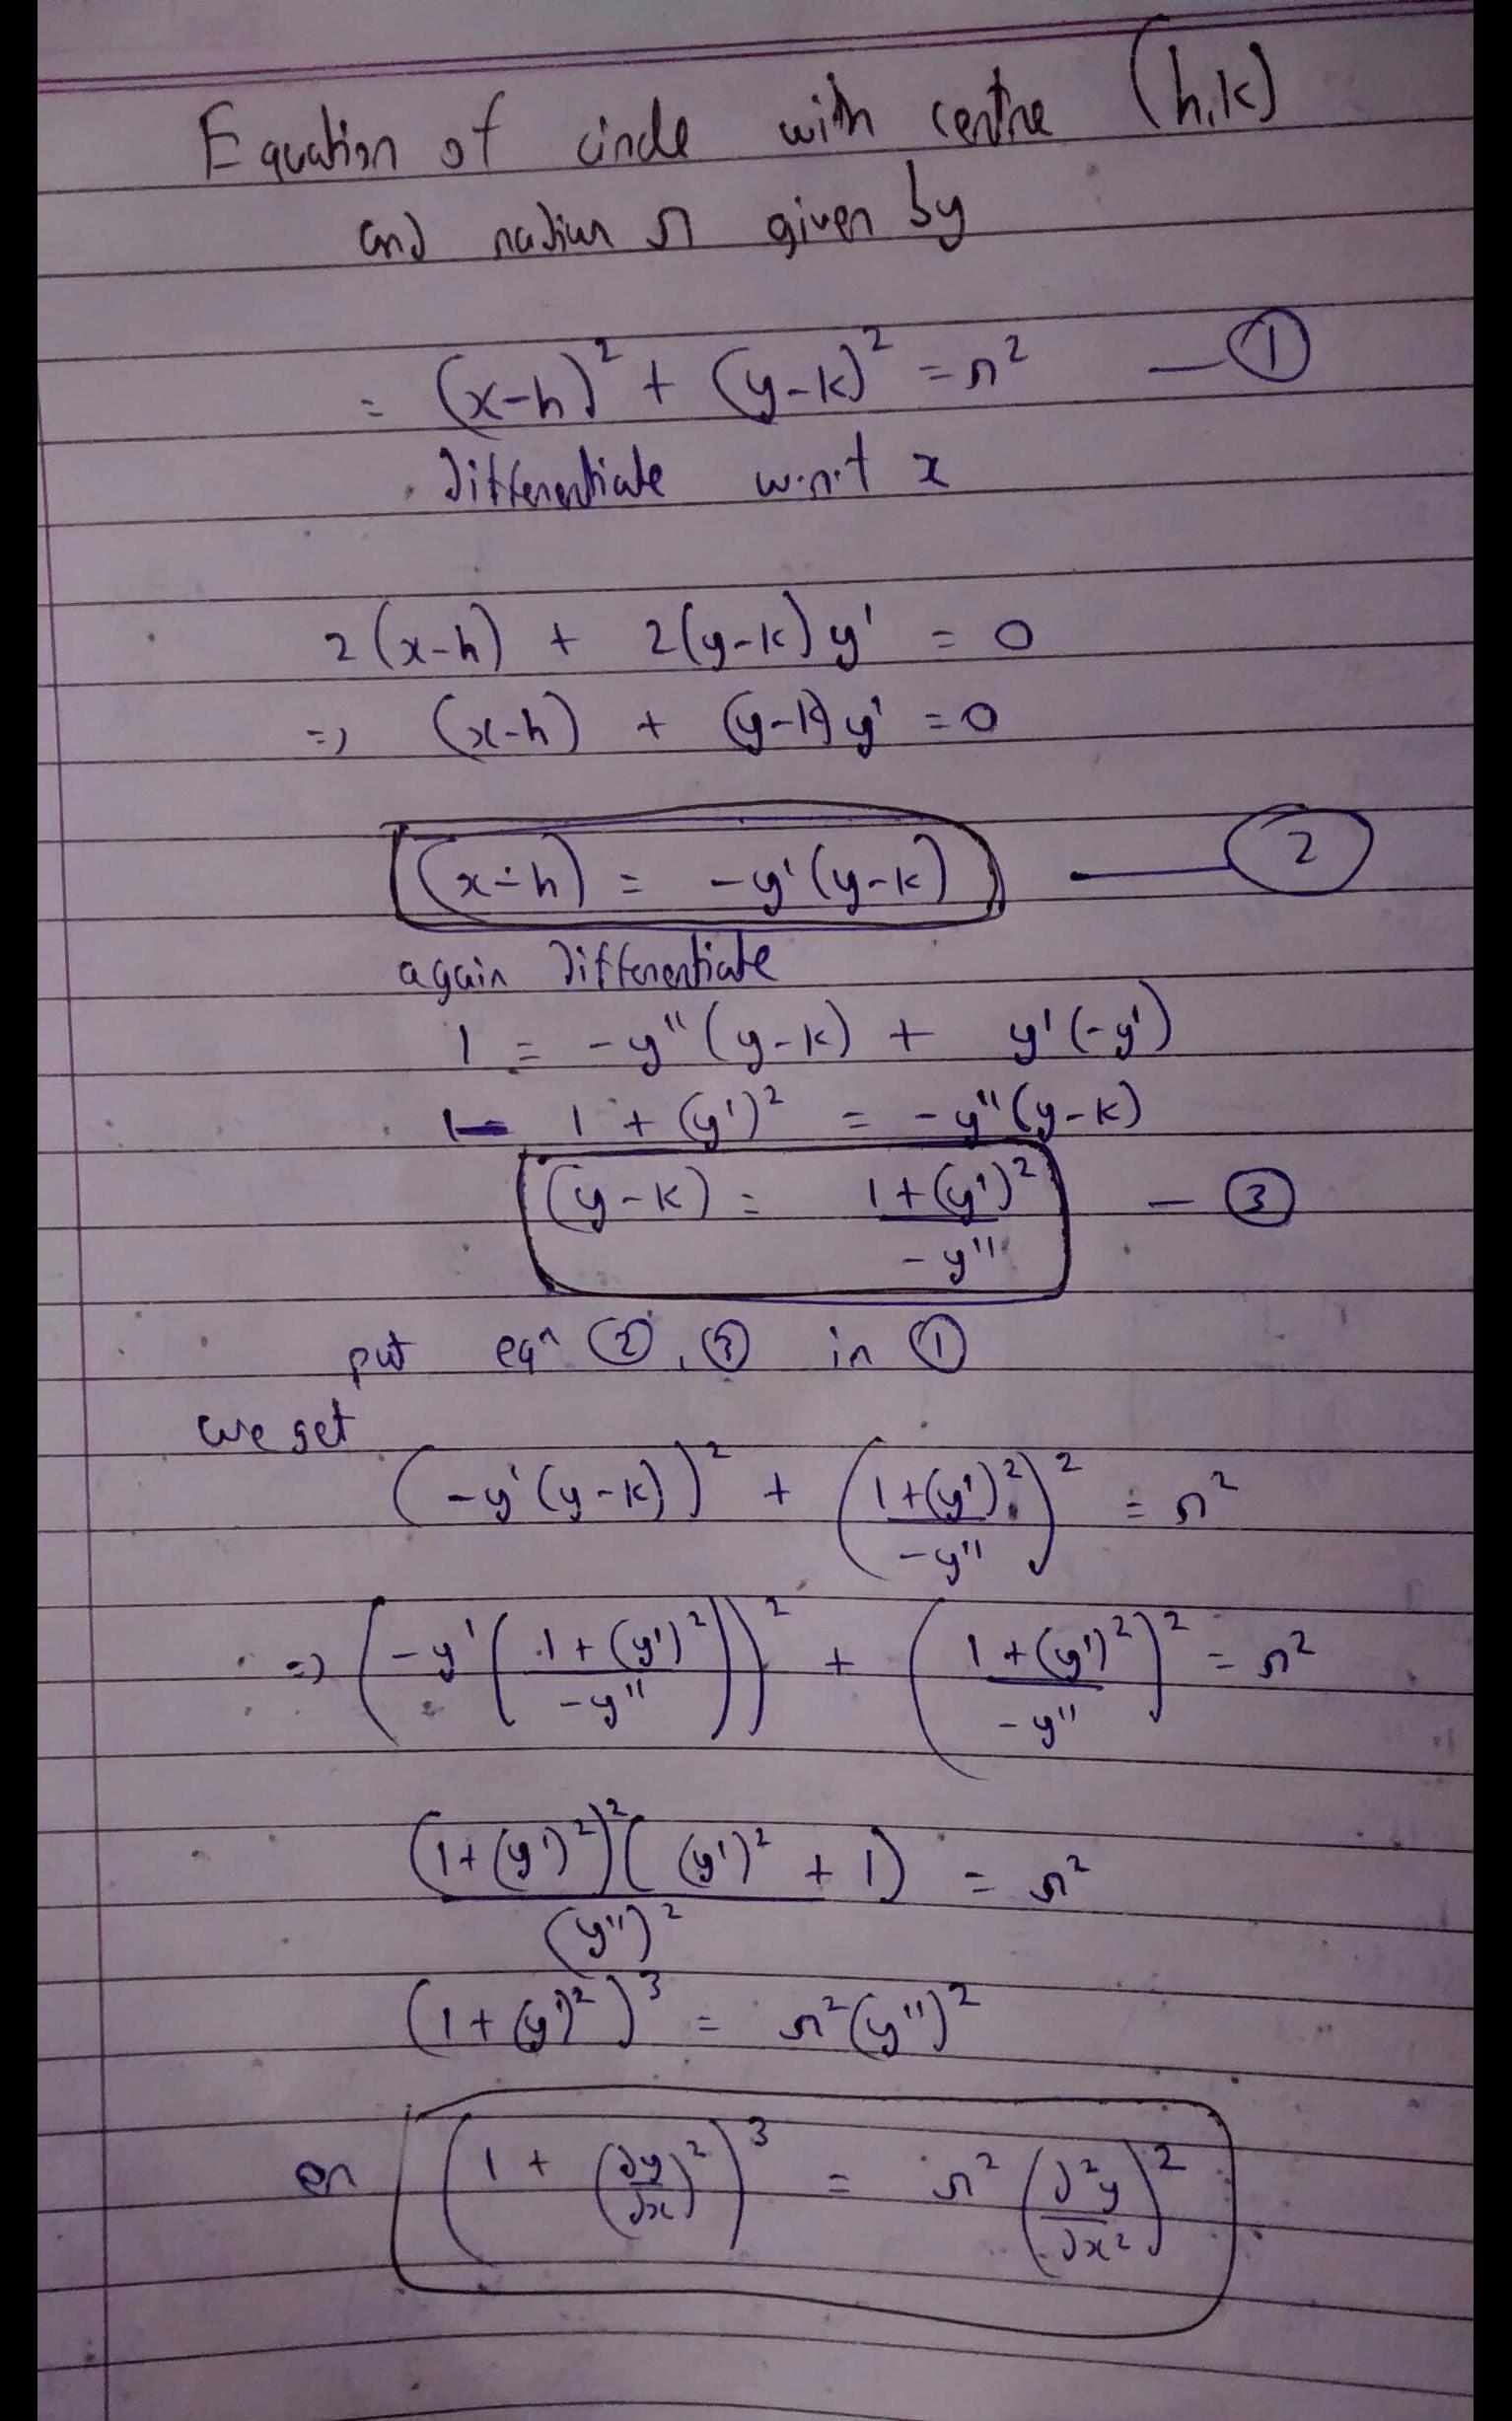 Equation of circle with centre (h,k)
and radius r given by
= (x-h)² + (y-k)² = r² — ①
differentiate w.r.t x
2(x-h) + 2(y-k)y' = 0
=> (x-h) + (y-k)y' = 0
(x-h) = -y'(y-k) — ②
again differentiate
1 = -y''(y-k) + y'(-y')
1 + (y')² = -y''(y-k)
(y-k) = (1+(y')²)/(-y'') — ③
put eqn ②, ③ in ①
we get
(-y'(y-k))² + ((1+(y')²)/(-y''))² = r²
=> (-y'((1+(y')²)/(-y'')))² + ((1+(y')²)/(-y''))² = r²
((1+(y')²)²((y')²+1))/(y'')² = r²
(1+(y')²)³ = r²(y'')²
or (1 + (dy/dx)²)³ = r²(d²y/dx²)²